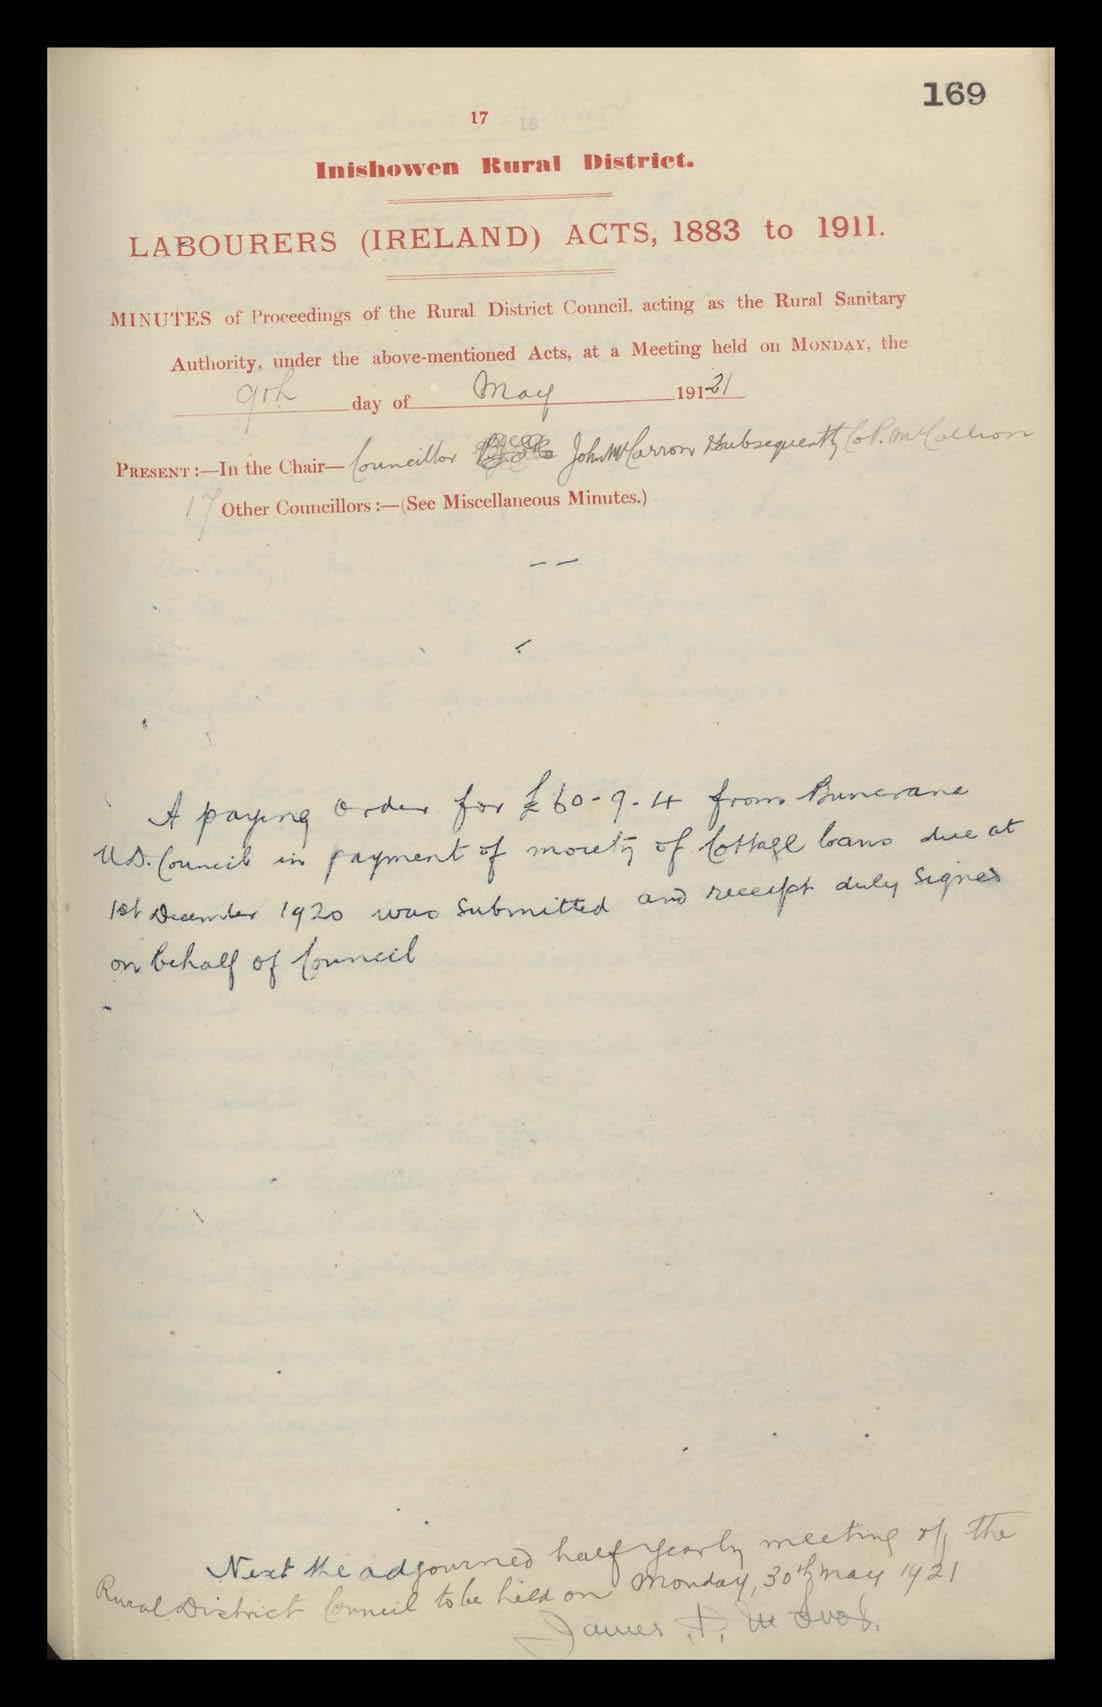 169
17
Inishowen Rural District.
LABOURERS (IRELAND) ACTS, 1883 to 1911.
MINUTES of Proceedings of the Rural District Council, acting as the Rural Sanitary
Authority, under the above-mentioned Acts, at a Meeting held on MONDAY, the
9th day of May 19121
PRESENT :—In the Chair— Councillor John McCarron Subsequently Col P. McCallion
17 Other Councillors :—(See Miscellaneous Minutes.)
A paying order for £60-9-4 from Buncrana
U.D. Council in payment of moiety of Cottage loans due at
1st December 1920 was submitted and receipt duly signed
on behalf of Council
Next the adjourned half yearly meeting of the
Rural District Council to be held on Monday, 30th May 1921
James